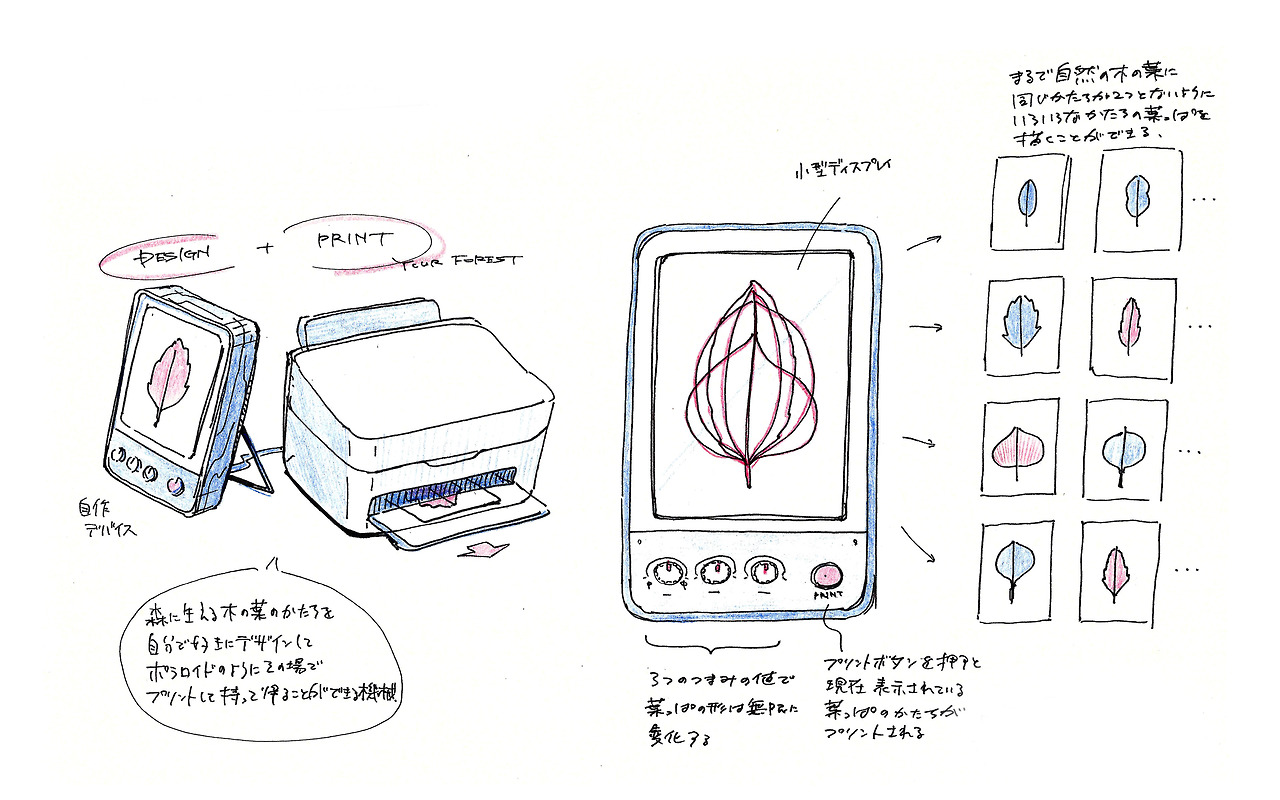 DESIGN + PRINT
YOUR FOREST
自作
デバイス
森に生える木の葉のかたちを
自分で好きにデザインして
ポラロイドのようにその場で
プリントして持って帰ることができる機械
小型ディスプレイ
PRINT
3つのつまみの値で
葉っぱの形は無限に
変化する
プリントボタンを押すと
現在表示されている
葉っぱのかたちが
プリントされる
まるで自然の木の葉に
同じかたちが2つとないように
いろいろなかたちの葉っぱを
描くことができる.